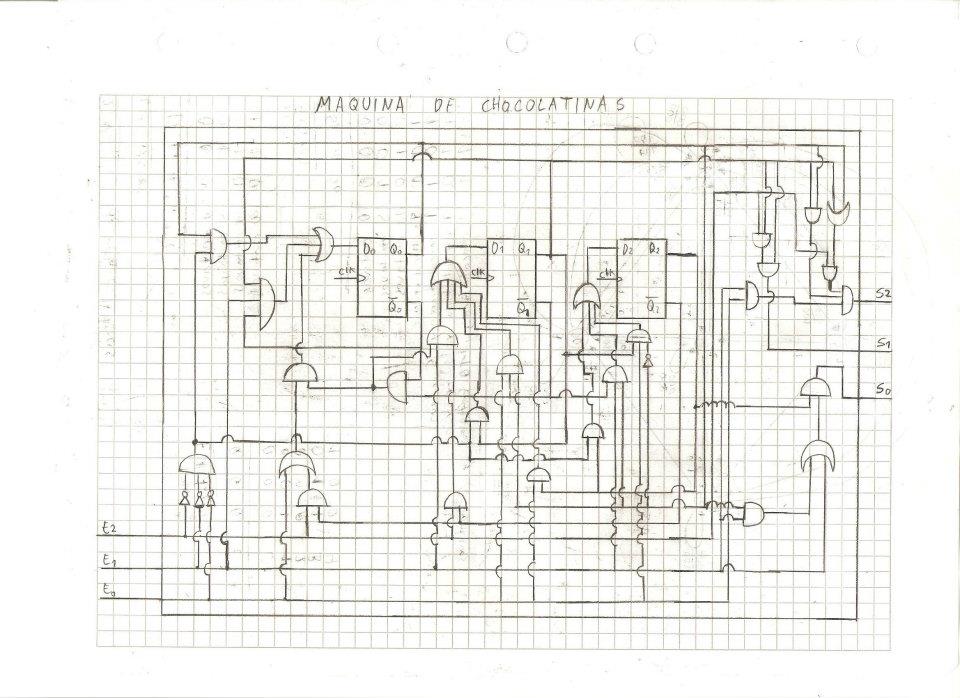 MAQUINA DE CHOCOLATINAS
D₀ Q₀
clk
Q̅₀
D₁ Q₁
clk
Q̅₁
D₂ Q₂
clk
Q̅₂
S2
S1
S₀
E2
E₁
E₀